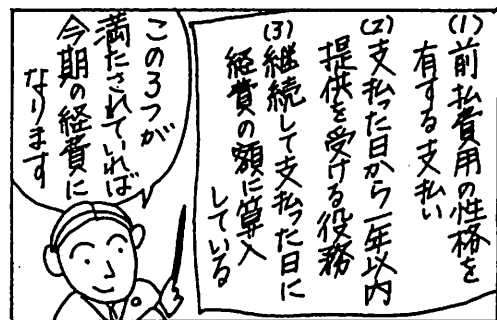 (1)前払費用の性格を
有する支払い
(2)支払った日から一年以内
提供を受ける役務
(3)継続して支払った日に
経費の額に算入
している
この3つが
満たされていれば
今期の経費に
なります